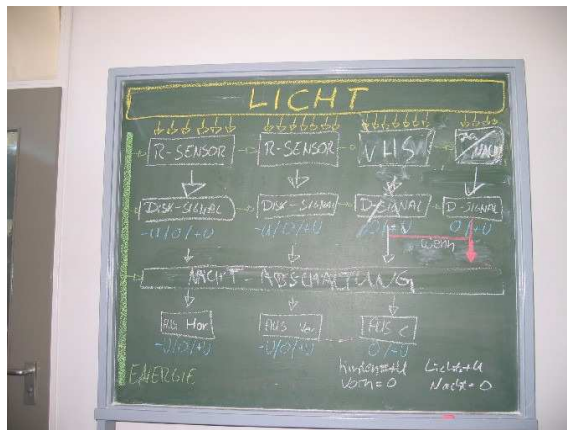 LICHT
R-SENSOR R-SENSOR VHS NACHT
DISK-SIGNAL DISK-SIGNAL D-SIGNAL D-SIGNAL
-U/0/+U -U/0/+U 0/+U
wenn
NACHT-ABSCHALTUNG
AUS Hor AUS Ver AUS C
-U/0/+U -U/0/+U 0/+U
ENERGIE
hinten=+U Licht=+U
Vorn=0 Nacht=0